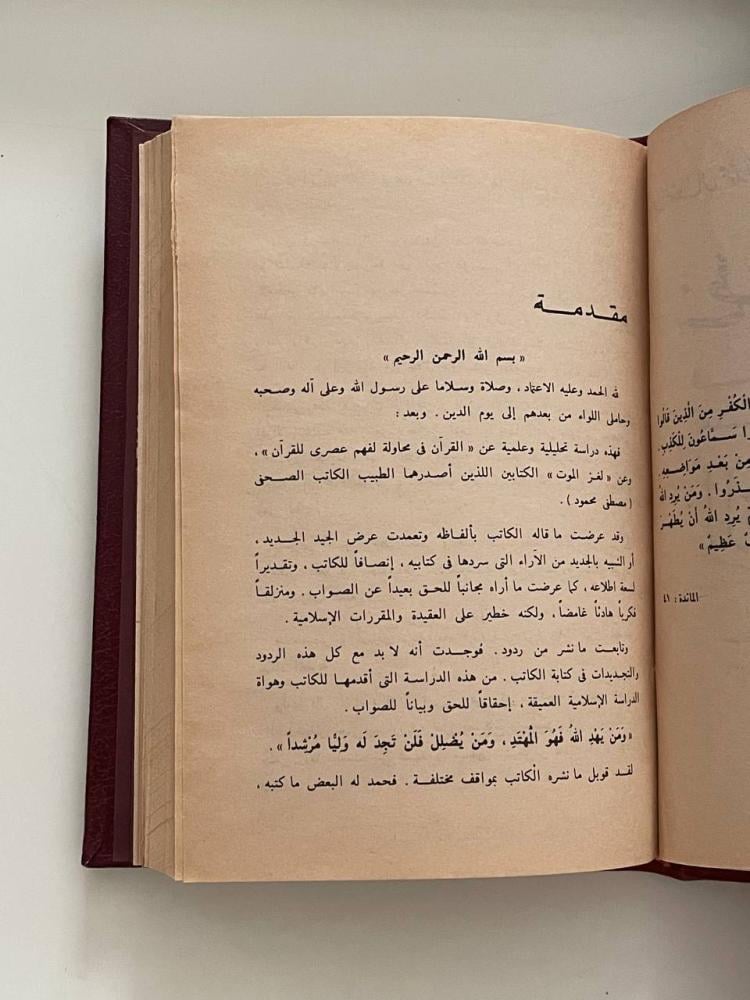 الْكُفْرِ مِنَ الَّذِينَ قَالُوا
سَمَّاعُونَ لِلْكَذِبِ .
مِنْ بَعْدِ مَوَاضِعِهِ
وَمَنْ يُرِدِ اللهُ
يُرِدِ اللهُ أَنْ يُطَهِّرَ
عَظِيمٌ »
المائدة : ٤١
مقدمة
« بسم الله الرحمن الرحيم »
لله الحمد وعليه الاعتماد ، وصلاة وسلاما على رسول الله وعلى آله وصحبه
وحاملى اللواء من بعدهم إلى يوم الدين . وبعد :
فهذه دراسة تحليلية وعلمية عن « القرآن فى محاولة لفهم عصرى للقرآن » ،
وعن « لغز الموت » الكتابين اللذين أصدرهما الطبيب الكاتب الصحفى
( مصطفى محمود ) .
وقد عرضت ما قاله الكاتب بألفاظه وتعمدت عرض الجيد الجديد ،
أو الشبيه بالجديد من الآراء التى سردها فى كتابيه ، إنصافاً للكاتب ، وتقديراً
لسعة اطلاعه ، كما عرضت ما أراه مجانباً للحق بعيداً عن الصواب . ومنزلقاً
فكرياً هادئاً غامضاً ، ولكنه خطير على العقيدة والمقررات الإسلامية .
وتابعت ما نشر من ردود . فوجدت أنه لا بد مع كل هذه الردود
والتجديدات فى كتابة الكاتب . من هذه الدراسة التى أقدمها للكاتب وهواة
الدراسة الإسلامية العميقة ، إحقاقاً للحق وبياناً للصواب .
« وَمَنْ يَهْدِ اللهُ فَهُوَ الْمُهْتَدِ ، وَمَنْ يُضْلِلْ فَلَنْ تَجِدَ لَه وَلِيًّا مُرْشِداً » .
لقد قوبل ما نشره الكاتب بمواقف مختلفة . فحمد له البعض ما كتبه ،